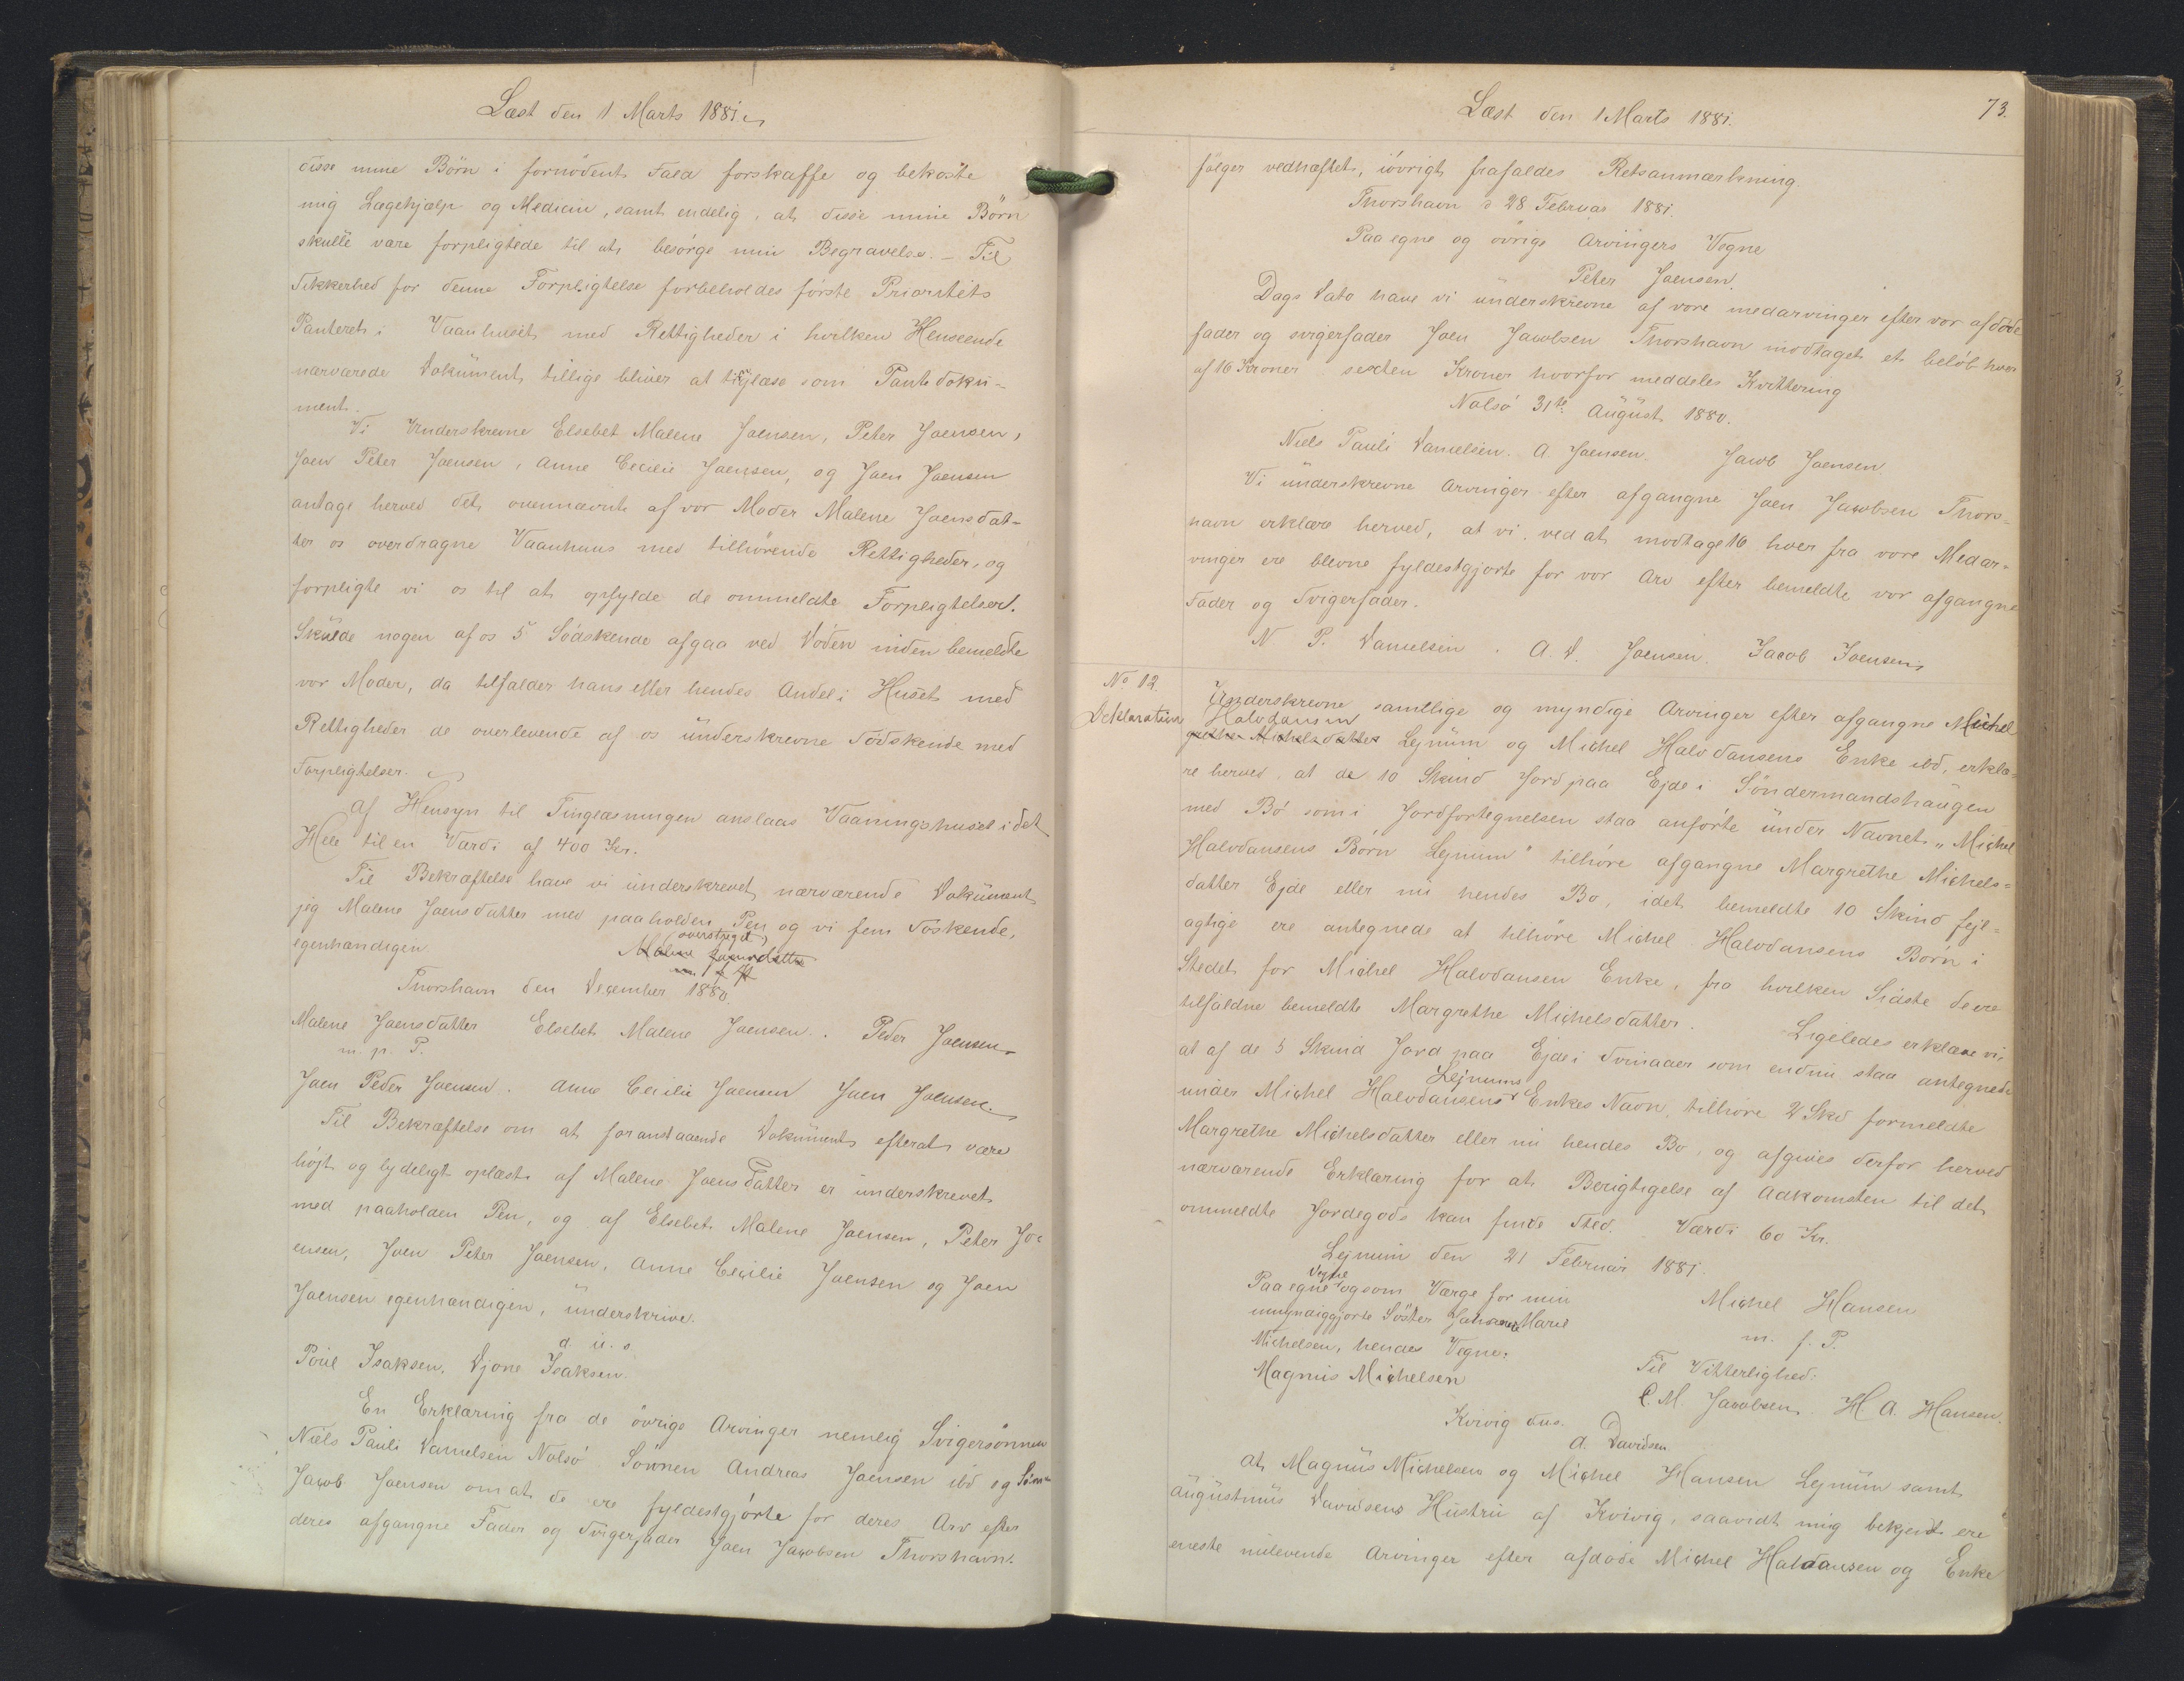 Læst den 1 Marts 1881.
disse mine Börn i fornödent Fald forskaffe og bekoste
mig Lægehjælp og Medicin, samt endelig, at disse mine Börn
skulle være forpligtede til at besörge min Begravelse. – Til
Sikkerhed for denne Forpligtelse forbeholdes förste Prioritets
Panteret i Vaanhuset med Rettigheder i hvilken Henseende
nærværede Dokument tillige bliver at tinglæse som Pantedoku-
ment.
Vi Underskrevne Elsebet Malene Joensen, Peter Joensen,
Joen Peter Joensen, Anne Cecilie Joensen, og Joen Joensen
antage herved det ovennævnte af vor Moder Malene Joensdat-
ter os overdragne Vaanhuus med tilhörende Rettigheder, og
forpligte vi os til at opfylde de ommeldte Forpligtelser.
Skulde nogen af os 5 Södskende afgaa ved Döden inden bemeldte
vor Moder, da tilfalder hans eller hendes Andel i Huset med
Rettigheder de overlevende af os underskrevne Södskende med
Forpligtelser.
Af Hensyn til Tinglæsningen anslaas Vaaningshuset i det
Hele til en Værdi af 400 Kr.
Til Bekræftelse have vi underskrevet nærværende Dokument
jeg Malene Joensdatter med paaholden Pen og vi fem Söskende,
egenhændigen. overstreget Malene Joensdatter
Thorshavn den December 1880.
Malene Joensdatter Elsebet Malene Joensen. Peder Joensen
m. p. P.
Joen Peder Joensen. Anne Cecilie Joensen Joen Joensen.
Til Bekræftelse om at foranstaaende Dokument efterat være
höjt og lydeligt oplæst af Malene Joensdatter er underskrevet
med paaholden Pen, og af Elsebet Malene Joensen, Peter Jo-
ensen, Joen Peter Joensen, Anne Cecilie Joensen og Joen
Joensen egenhændigen, underskrive.
d. u. s.
Poul Isaksen. Djone Isaksen.
En Erklæring fra de övrige Arvinger nemlig Svigersönnen
Niels Pauli Danielsen Nolsö Sönnen Andreas Joensen ibd og Sönnen
Jacob Joensen om at de ere fyldestgjörte for deres Arv efter
deres afgangne Fader og Svigerfader Joen Jacobsen Thorshavn.
Læst den 1 Marts 1881.
73.
fölger vedhæftet, iövrigt frafaldes Retsanmærkning.
Thorshavn d 28 Februar 1881.
Paa egne og övrige Arvingers Vegne
Peter Joensen.
Dags Dato have vi underskrevne af vore medarvinger efter vor afdöde
fader og svigerfader Joen Jacobsen Thorshavn modtaget et belöb hver
af 16 Kroner sexten Kroner hvorfor meddeles Kvittering
Nolsö 31te August 1880.
Niels Pauli Danielsen. A. Joensen. Jacob Joensen
Vi underskrevne Arvinger efter afgangne Joen Jacobsen Thors-
havn erklære herved, at vi ved at modtage 16 hver fra vore Medar-
vinger ere blevne fyldestgjorte for vor Arv efter bemeldte vor afgangne
Fader og Svigerfader.
N P. Danielsen. A. D. Joensen. Jacob Joensen
No 12.
Deklaration
Underskrevne samtlige og myndige Arvinger efter afgangne Michel
Halvdansen
grethe Michelsdatter Lejnum og Michel Halvdansens Enke ibd, erklæ-
re herved, at de 10 Skind Jord paa Ejde i Söndermandshaugen
med Bö som i Jordfortegnelsen staa anförte under Navnet "Michel
Halvdansens Börn Lejnum" tilhöre afgangne Margrethe Michels-
datter Ejde eller nu hendes Bo, idet bemeldte 10 Skind fejl-
agtige ere antegnede at tilhöre Michel Halvdansens Börn i
Stedet for Michel Halvdansen Enke, fra hvilken Sidste de ere
tilfaldne bemeldte Margrethe Michelsdatter. Ligeledes erklære vi,
at af de 5 Skind Jord paa Ejde i Svinaaer som endnu staa antegnede
Lejnums
under Michel Halvdansens Enkes Navn, tilhöre 2 Skd formeldte
Margrethe Michelsdatter eller nu hendes Bo, og afgives derfor herved
nærværende Erklæring for at Berigtigelse af Adkomsten til det
ommeldte Jordegods kan finde Sted. Værdi 60 Kr.
Lejnum den 21 Februar 1881.
Vegne
Paa egne og som Værge for min
umyndiggjorte Söster Johanne Marie
Michelsen, hendes Vegne.
Magnus Michelsen
Michel Hansen
m. f. P.
Til Vitterlighed:
C. M. Jacobsen. H. A. Hansen.
Kvivig dus.
A. Davidsen
At Magnus Michelsen og Michel Hansen Lejnum samt
Augustinus Davidsens Hustru af Kvivig, saavidt mig bekjendt ere
eneste nulevende Arvinger efter afdöde Michel Haldansen og Enke